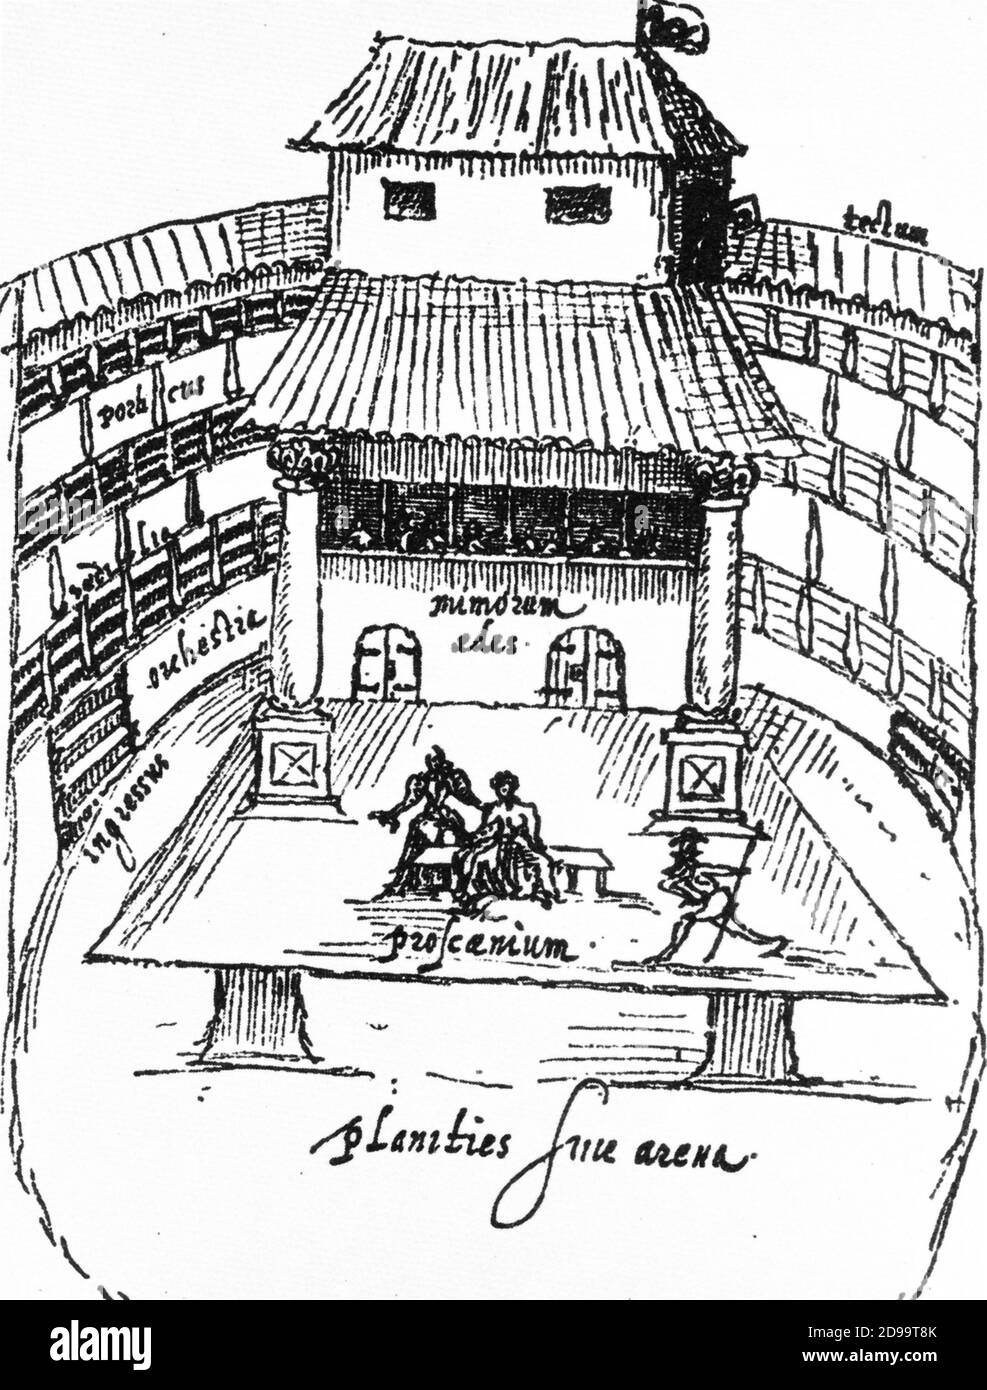 tectum
porticus
sedilia
orchestra
mimorum
ædes.
ingressus
proscænium.
planities siue arena.
alamy
Image ID: 2D99T8K
www.alamy.com